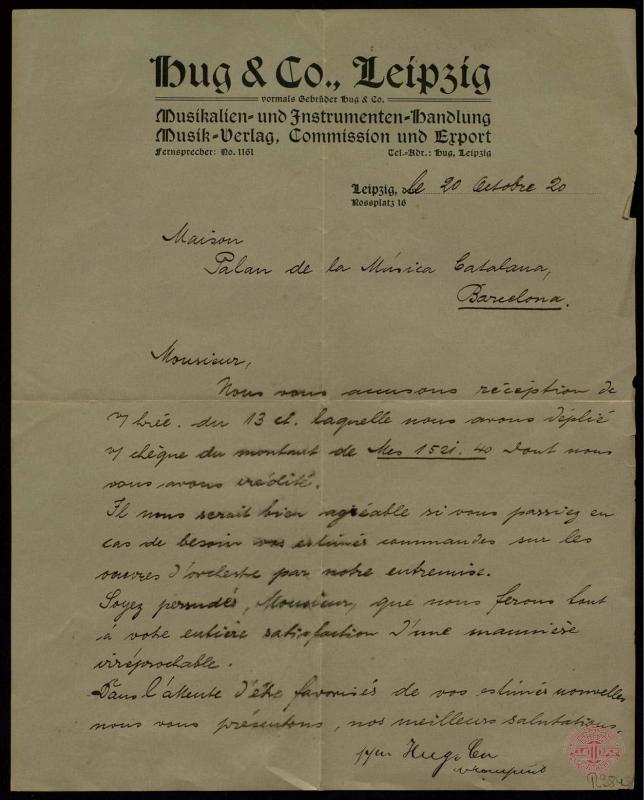 Hug & Co., Leipzig
vormals Gebrüder Hug & Co.
Musikalien- und Instrumenten-Handlung
Musik-Verlag, Commission und Export
Fernsprecher: No. 1161 Tel.-Adr.: Hug, Leipzig
Leipzig, le 20 Octobre 20
Rossplatz 16
Maison
Palau de la Música Catalana,
Barcelona.
Monsieur,
Nous vous accusons réception de
du 13 ct. laquelle nous avons déplié
chèque du montant de Mes 1521.40 dont nous
vous avons crédité.
Il nous serait bien agréable si vous passiez en
cas de besoin vos estimés commandes sur les
oeuvres d'orchestre par notre entremise.
Soyez persuadés, Monsieur, que nous ferons tout
à votre entière satisfaction d'une mannière
irréprochable.
Dans l'attente d'été favorisés de vos estimés nouvelles
nous vous présentons, nos meilleurs salutations.
Hug & Co